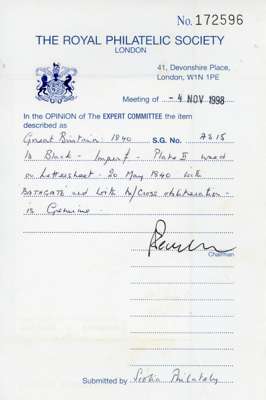 No. 172596
THE ROYAL PHILATELIC SOCIETY
LONDON
41, Devonshire Place,
London, W1N 1PE
Meeting of - 4 NOV 1998
In the OPINION of The EXPERT COMMITTEE the item
described as
Great Britain 1840 S.G. No. AS15
1d Black - Imperf - Plate II used
on Lettersheet - 20 May 1840 with
BATHGATE and with M/Cross obliteration -
is Genuine -
Chairman
Submitted by Scotia Philately